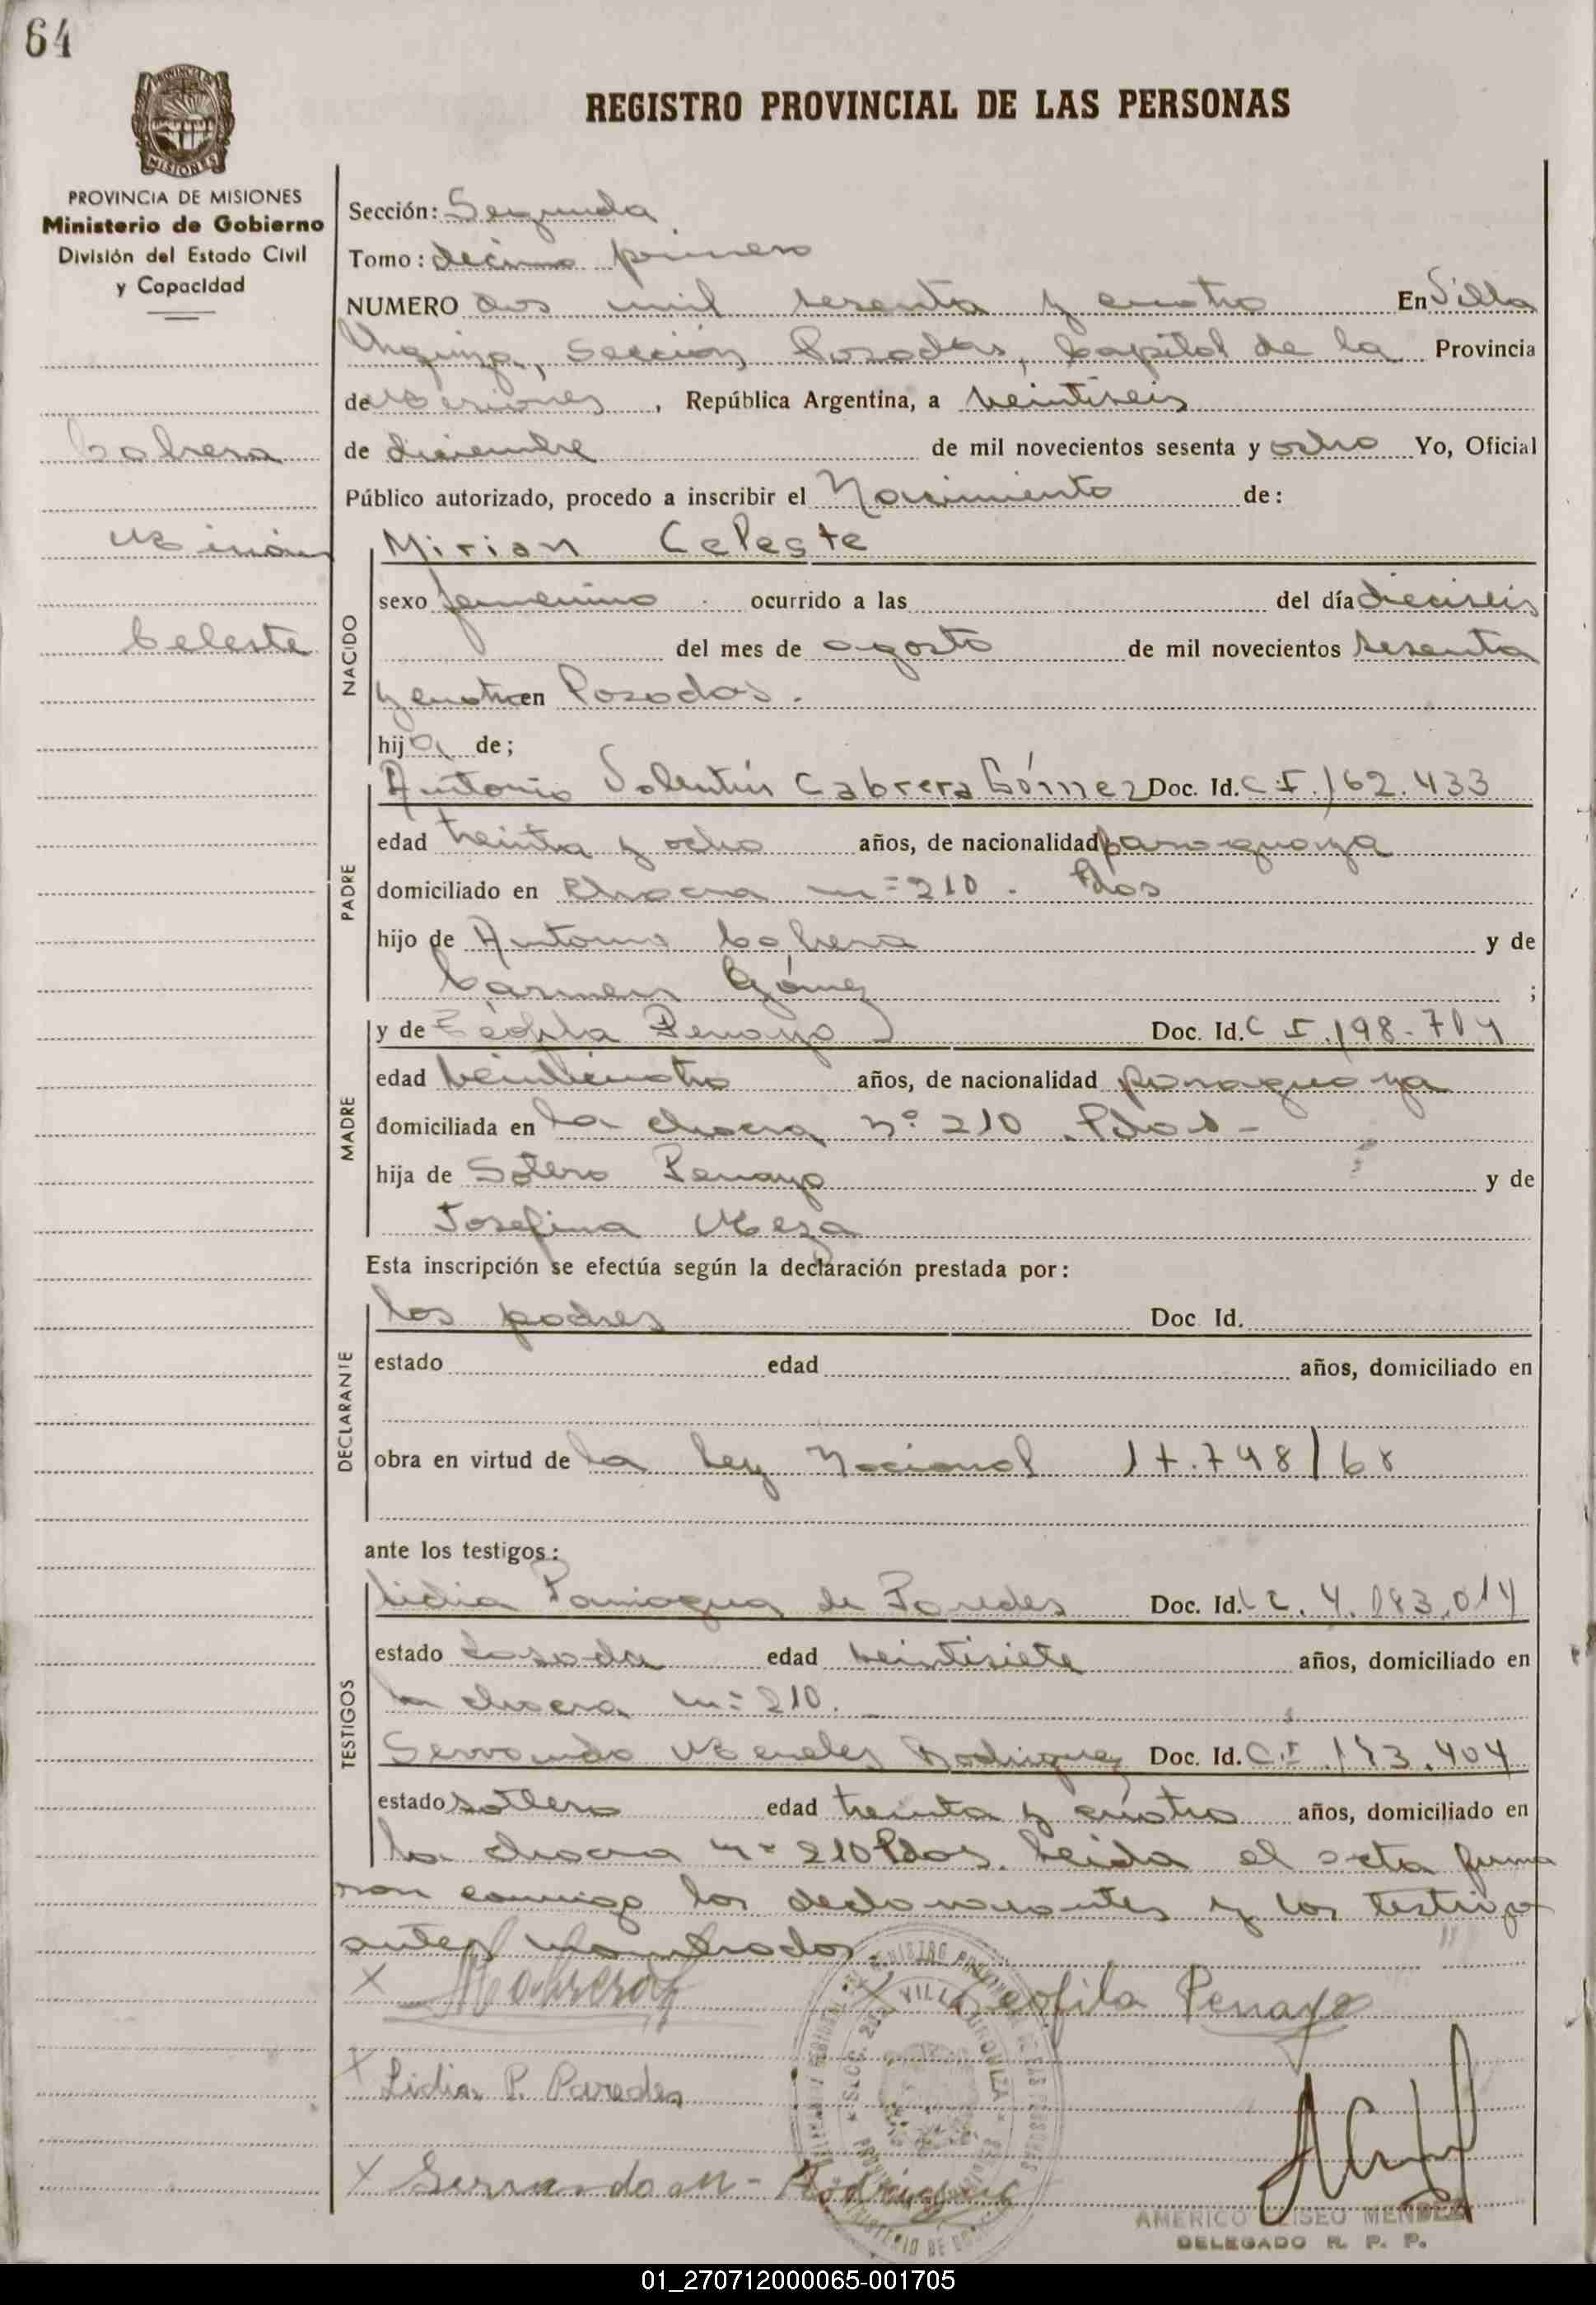 64
REGISTRO PROVINCIAL DE LAS PERSONAS
PROVINCIA DE MISIONES
Ministerio de Gobierno
División del Estado Civil
y Capacidad
Cabrera
Mirian
Celeste
Sección: Segunda
Tomo: décimo primero
NUMERO dos mil sesenta y cuatro En Villa
Urquiza, Sección Posadas, Capital de la Provincia
de Misiones, República Argentina, a veintiseis
de diciembre de mil novecientos sesenta y ocho Yo, Oficial
Público autorizado, procedo a inscribir el Nacimiento de:
NACIDO
Mirian Celeste
sexo femenino ocurrido a las del día dieciseis
del mes de agosto de mil novecientos sesenta
y cuatro en Posadas.
hija de;
PADRE
Antonio Valentín Cabrera Gómez Doc. Id. C.I. 162.433
edad treinta y ocho años, de nacionalidad paraguaya
domiciliado en chacra nº 210. Pdas
hijo de Antonio Cabrera y de
Carmen Gómez ;
MADRE
y de Teófila Penayo Doc. Id. C.I. 198.704
edad veinticuatro años, de nacionalidad paraguaya
domiciliada en la chacra nº 210 Pdas -
hija de Sotero Penayo y de
Josefina Meza
Esta inscripción se efectúa según la declaración prestada por:
DECLARANTE
los padres Doc Id.
estado edad años, domiciliado en
obra en virtud de la ley Nacional 17.748/68
ante los testigos:
TESTIGOS
Lidia Paniagua de Paredes Doc. Id. L C.
estado casada edad veintisiete años, domiciliado en
la chacra nº 210.
Servando Rodriguez Doc. Id. C.I.
estado soltero edad treinta y cuatro años, domiciliado en
la chacra nº 210 Pdas. Leida el acta firma
ron conmigo los declarantes y los testigos
antes nombrados
x x Teofila Penayo
x Lidia P. Paredes
x Servando M - Rodriguez
VILLA URQUIZA
AMERICO ELISEO MENDEZ
DELEGADO R. P. P.
01_270712000065-001705